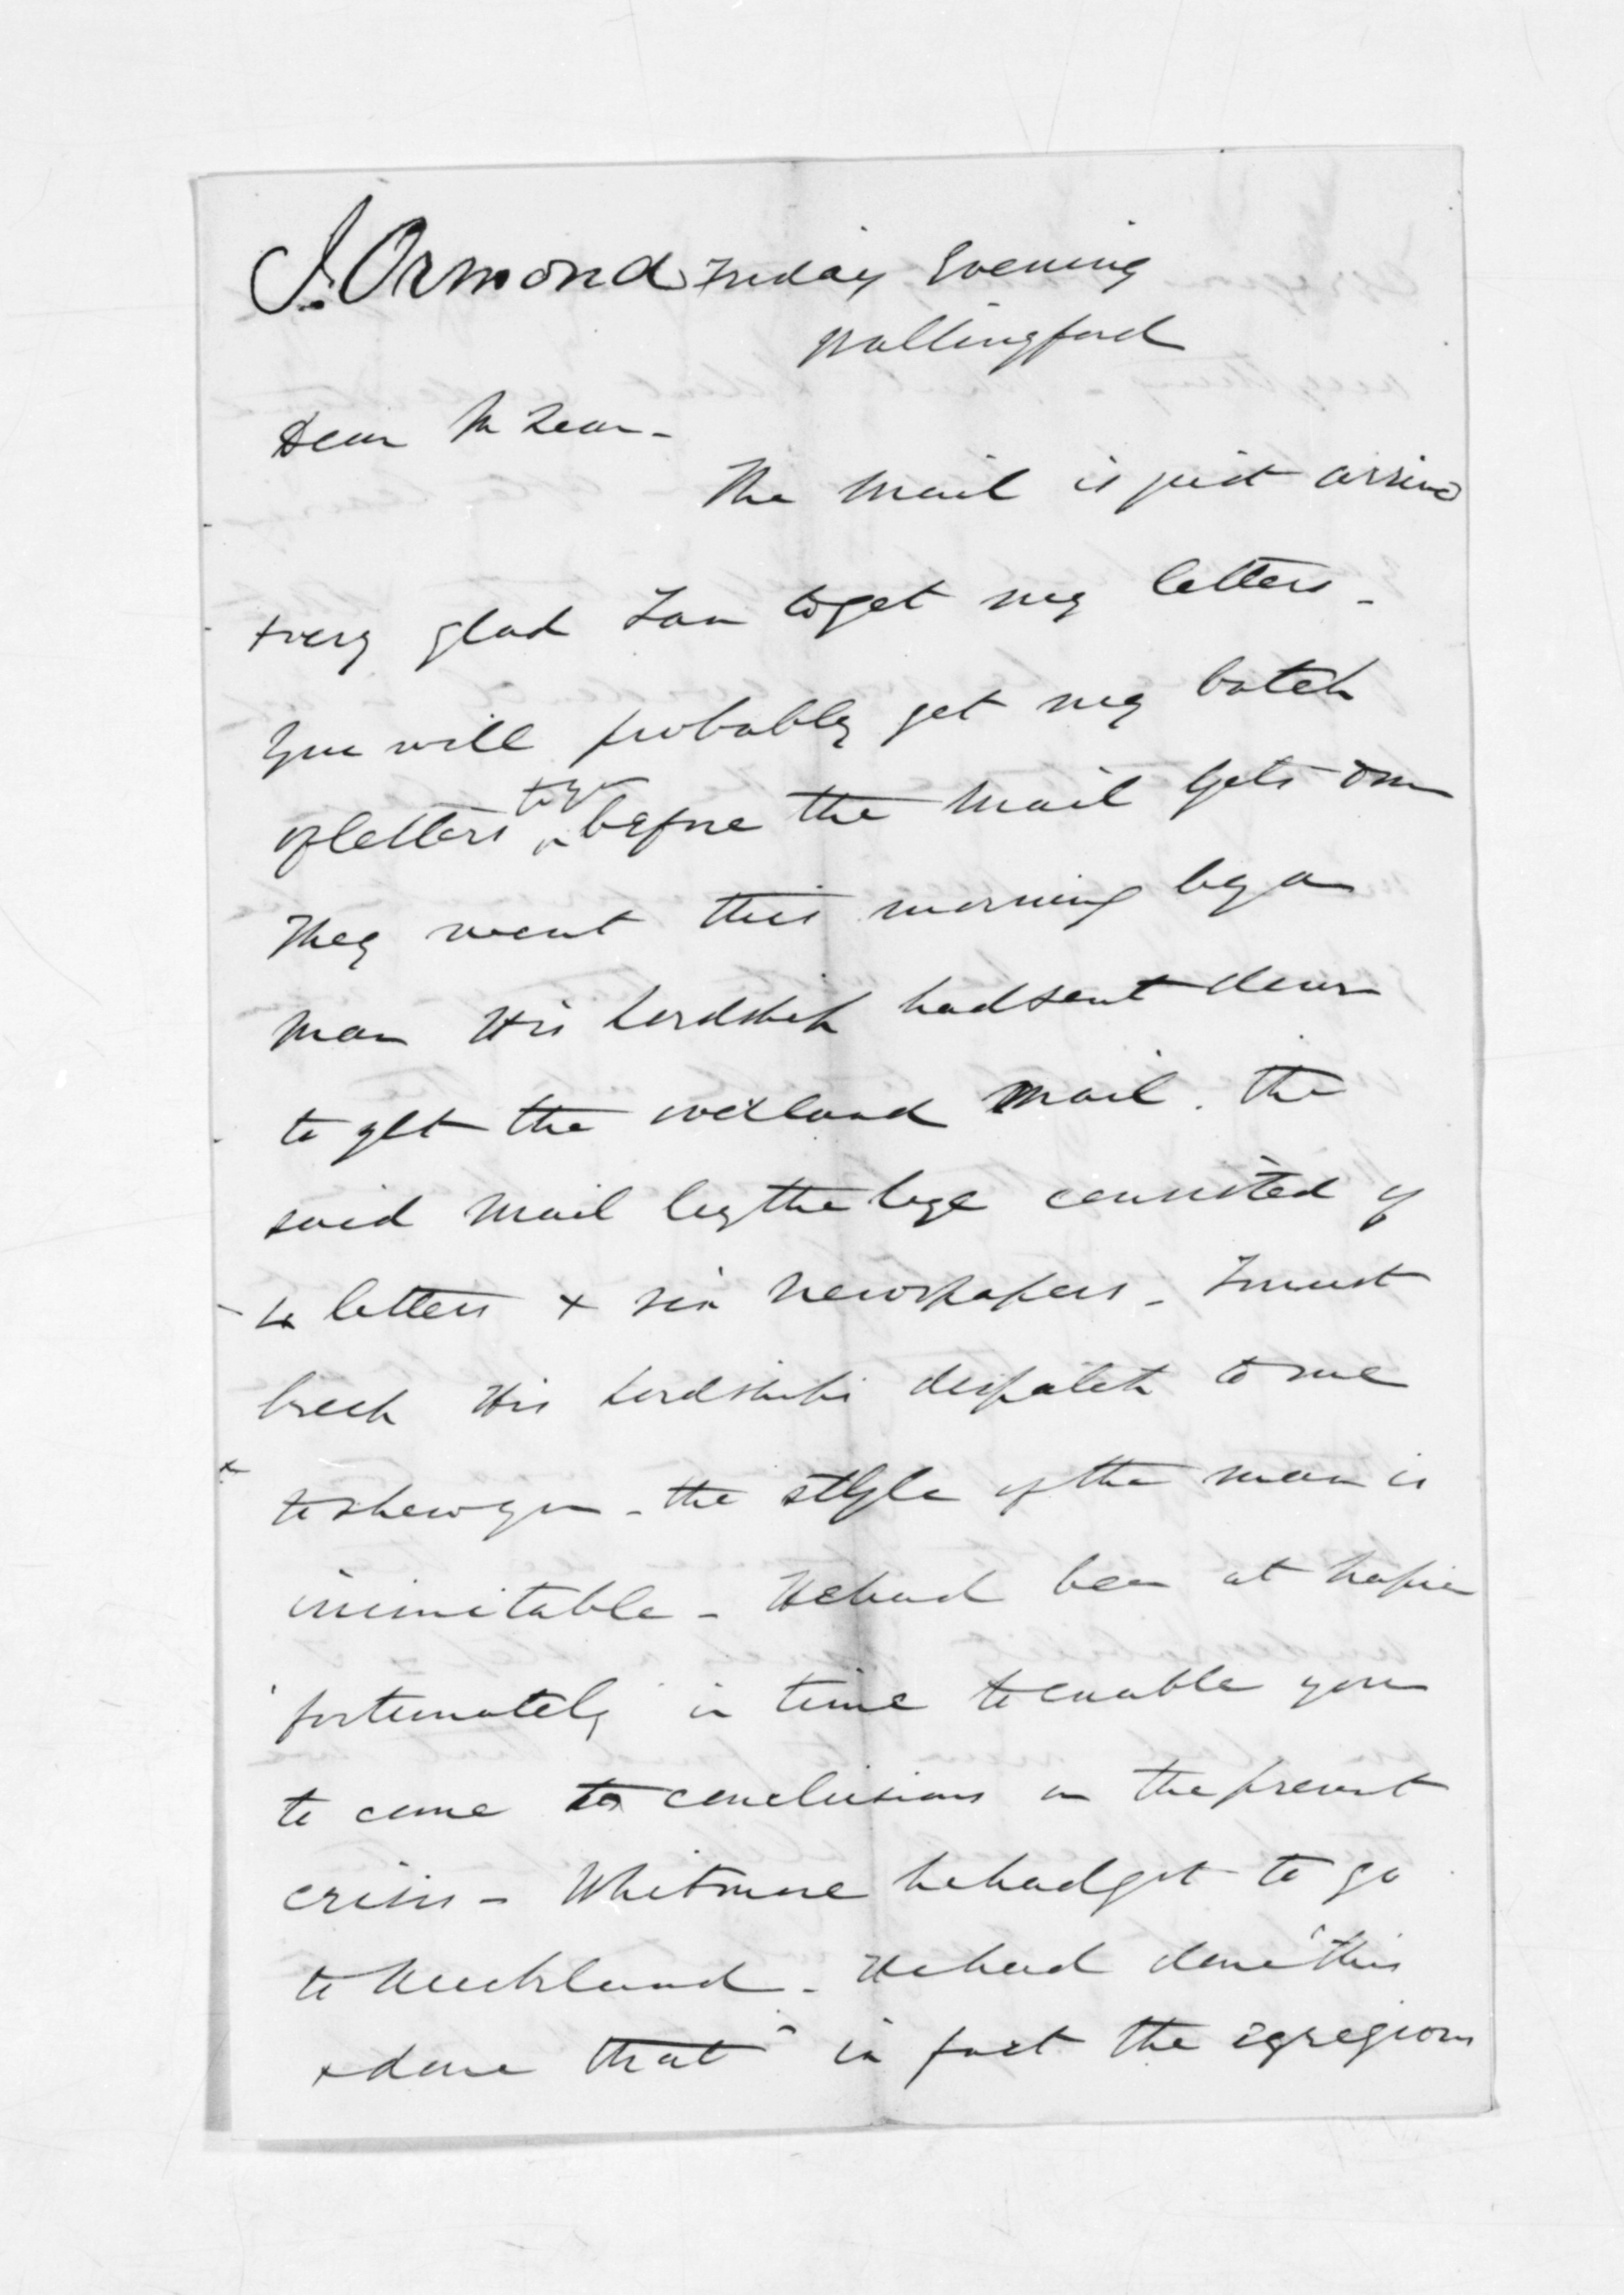 J. Ormond Friday Evening
Wallingford
Dear McLean -
The Mail is just arrived
+ very glad I am to get my letters -
You will probably get my batch
of letters to you before the Mail gets on
They went this morning by a
man His Lordship had sent down
to get the overland Mail. the
said Mail by the bye consisted of
4 letters + six Newspapers - I must
keep His Lordships despatch to me
to shew you - the style of the man is
inimitable - He had been at Napier
'fortunately' in time to enable you
to come to conclusions on the present
crisis - Whitmore he had got to go
to Auckland - He had done "this
+ done that" in fact the egregious